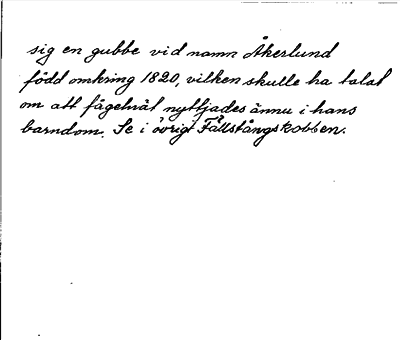 sig en gubbe vid namn Åkerlund
född omkring 1820, vilken skulle ha talat
om att fågelnät nyttjades ännu i hans
barndom. Se i övrigt Fällstångskobben.